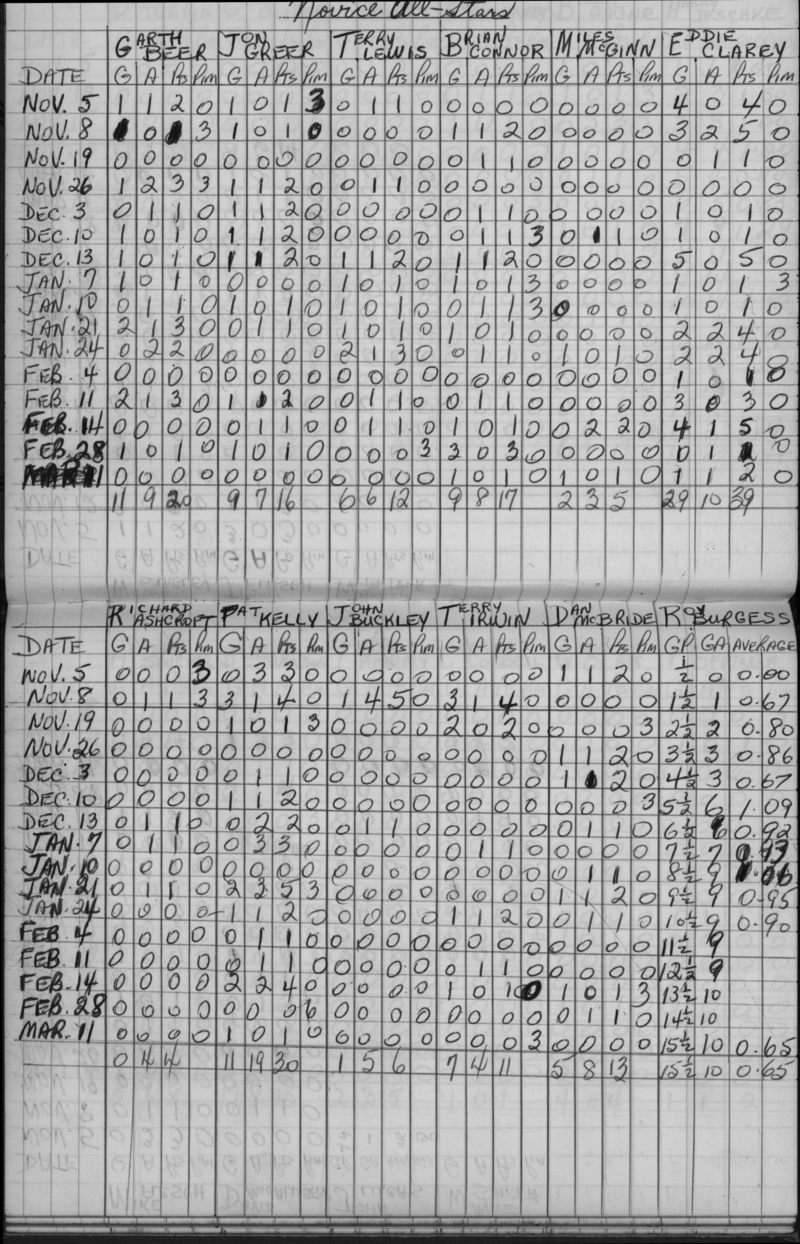 Novice All-Stars
GARTH BEER JON GREER TERRY LEWIS BRIAN CONNOR MILES McGINN EDDIE CLAREY
DATE G A Pts Pim G A Pts Pim G A Pts Pim G A Pts Pim G A Pts Pim G A Pts Pim
NOV. 5 1 1 2 0 1 0 1 3 0 1 1 0 0 0 0 0 0 0 0 0 4 0 4 0
NOV. 8 1 0 1 3 1 0 1 0 0 0 0 0 1 1 2 0 0 0 0 0 3 2 5 0
NOV. 19 0 0 0 0 0 0 0 0 0 0 0 0 0 1 1 0 0 0 0 0 0 1 1 0
NOV. 26 1 2 3 3 1 1 2 0 0 1 1 0 0 0 0 0 0 0 0 0 0 0 0 0
DEC. 3 0 1 1 0 1 1 2 0 0 0 0 0 0 1 1 0 0 0 0 0 1 0 1 0
DEC. 10 1 0 1 0 1 1 2 0 0 0 0 0 0 1 1 3 0 1 1 0 1 0 1 0
DEC. 13 1 0 1 0 1 1 2 0 1 1 2 0 1 1 2 0 0 0 0 0 5 0 5 0
JAN. 7 1 0 1 0 0 0 0 0 1 0 1 0 1 0 1 3 0 0 0 0 1 0 1 3
JAN. 10 0 1 1 0 1 0 1 0 1 0 1 0 0 1 1 3 0 0 0 0 1 0 1 0
JAN. 21 2 1 3 0 0 1 1 0 1 0 1 0 1 0 1 0 0 0 0 0 2 2 4 0
JAN. 24 0 2 2 0 0 0 0 0 2 1 3 0 0 1 1 0 1 0 1 0 2 2 4 0
FEB. 4 0 0 0 0 0 0 0 0 0 0 0 0 0 0 0 0 0 0 0 0 1 0 1 0
FEB. 11 2 1 3 0 1 1 2 0 0 1 1 0 0 1 1 0 0 0 0 0 3 0 3 0
FEB. 14 0 0 0 0 0 1 1 0 0 1 1 0 1 0 1 0 0 2 2 0 4 1 5 0
FEB. 28 1 0 1 0 1 0 1 0 0 0 0 3 3 0 3 0 0 0 0 0 0 1 1 0
MAR. 11 0 0 0 0 0 0 0 0 0 0 0 0 1 0 1 0 1 0 1 0 1 1 2 0
11 9 20 9 7 16 6 6 12 9 8 17 2 3 5 29 10 39
RICHARD ASHCROFT PAT KELLY JOHN BUCKLEY TERRY IRWIN DAN McBRIDE ROY BURGESS
DATE G A Pts Pim G A Pts Pim G A Pts Pim G A Pts Pim G A Pts Pim GP GA AVERAGE
NOV. 5 0 0 0 3 0 3 3 0 0 0 0 0 0 0 0 0 1 1 2 0 ½ 0 0.00
NOV. 8 0 1 1 3 3 1 4 0 1 4 5 0 3 1 4 0 0 0 0 0 1½ 1 0.67
NOV. 19 0 0 0 0 1 0 1 3 0 0 0 0 2 0 2 0 0 0 0 3 2½ 2 0.80
NOV. 26 0 0 0 0 0 0 0 0 0 0 0 0 0 0 0 0 1 1 2 0 3½ 3 0.86
DEC. 3 0 0 0 0 0 1 1 0 0 0 0 0 0 0 0 0 1 1 2 0 4½ 3 0.67
DEC. 10 0 0 0 0 1 1 2 0 0 0 0 0 0 0 0 0 0 0 0 3 5½ 6 1.09
DEC. 13 0 1 1 0 0 2 2 0 0 1 1 0 0 0 0 0 0 1 1 0 6½ 6 0.92
JAN. 7 0 1 1 0 0 3 3 0 0 0 0 0 0 1 1 0 0 0 0 0 7½ 7 0.93
JAN. 10 0 0 0 0 0 0 0 0 0 0 0 0 0 0 0 0 0 1 1 0 8½ 9 1.06
JAN. 21 0 1 1 0 2 3 5 3 0 0 0 0 0 0 0 0 1 1 2 0 9½ 9 0.95
JAN. 24 0 0 0 0 1 1 2 0 0 0 0 0 1 1 2 0 0 1 1 0 10½ 9 0.90
FEB. 4 0 0 0 0 0 1 1 0 0 0 0 0 0 0 0 0 0 0 0 0 11½ 9
FEB. 11 0 0 0 0 0 1 1 0 0 0 0 0 0 1 1 0 0 0 0 0 12½ 9
FEB. 14 0 0 0 0 2 2 4 0 0 0 0 0 1 0 1 0 1 0 1 3 13½ 10
FEB. 28 0 0 0 0 0 0 0 6 0 0 0 0 0 0 0 0 0 1 1 0 14½ 10
MAR. 11 0 0 0 0 1 0 1 0 0 0 0 0 0 0 0 3 0 0 0 0 15½ 10 0.65
0 4 4 11 19 30 1 5 6 7 4 11 5 8 13 15½ 10 0.65